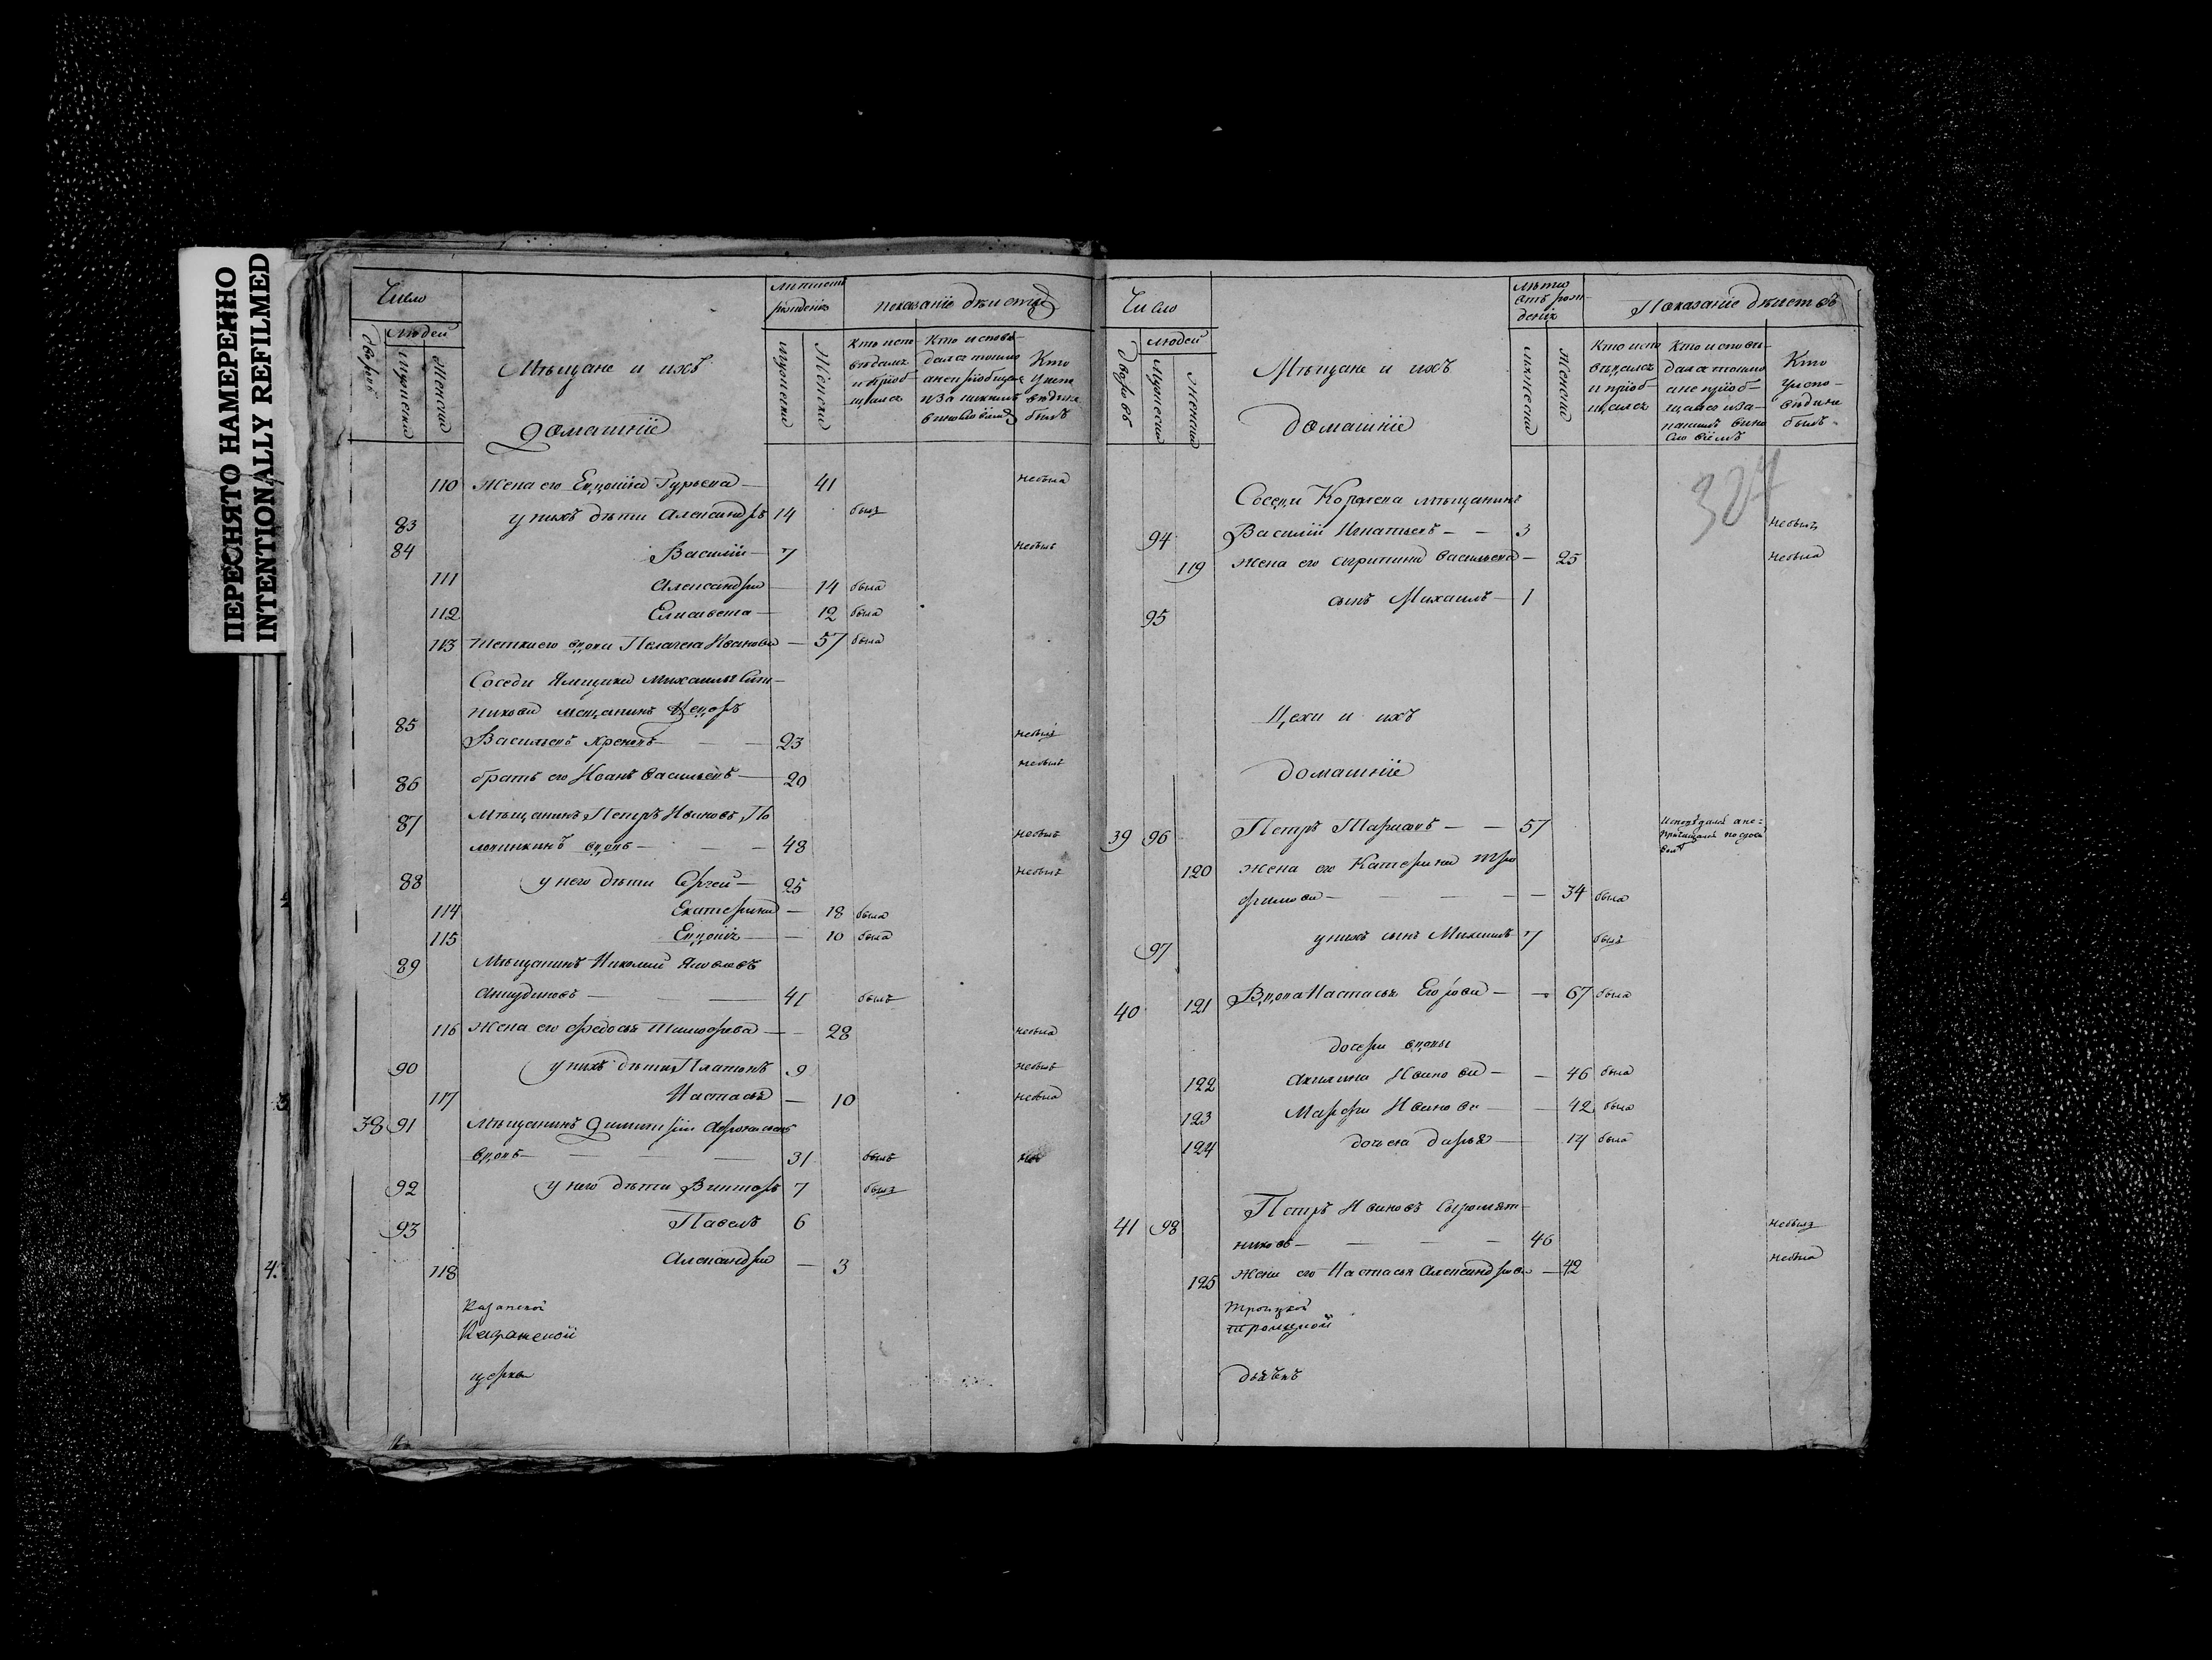 ПЕРЕСНЯТО НАМЕРЕННО
INTENTIONALLY REFILMED
Число
людей
дворовъ
мужеска
женска
Мѣщане и ихъ
домашніе
рожденія
мужеска
женска
показаніе дѣйствъ
Кто испо
вѣдался
и пріоб-
щался
Кто испове-
дался только
а не пріобщался
и за какимъ
винословіемъ
Кто
у испо
вѣди не
былъ
110 жена его Евдокіа Гурьева — 41 небыла
83 у нихъ дѣти Александръ 14 былъ
84 Василій — 7 небылъ
111 Александра — 14 была
112 Елисавета — 12 была
113 тетка его вдова Пелагея Иванова — 57 была
Соседи Ямщика Михаила Сит-
никова мещанинъ Федоръ
85 Васильевъ — — 23 небылъ
86 братъ его Иванъ Васильевъ — 20 небылъ
87 Мѣщанинъ Петръ Ивановъ По
вдовъ — — 48 небылъ
88 у него дѣти Сергей — 25 небылъ
114 Екатерина — 18 была
115 Евдокія — 10 была
89 Мѣщанинъ Николай Яковлевъ
Анцудиновъ — — 41 былъ
116 жена его Федосья Тимофеева — 28 небыла
90 у нихъ дѣти Платонъ 9 небылъ
117 Настасья — 10 небыла
38 91 Мѣщанинъ Димитрій Афонасьевъ
вдовъ — — — 31 былъ
92 у него дѣти Викторъ 7 былъ
93 Павелъ 6
118 Александра — 3
Казанской
Казанской
церкви
Число
людей
дворовъ
мужеска
женска
Мѣщане и ихъ
домашніе
лѣта
отъ рож-
денія
мужеска
женска
Показаніе дѣйствъ
Кто испо
вѣдался
и пріоб-
щился
Кто исповѣ-
дался только
а не пріоб-
щался и за
какимъ вино
словіемъ
Кто
у испо-
вѣди не
былъ
304
Соседи мѣщанинъ
94 Василій Игнатьевъ — — 3 небылъ
119 жена его Васильева — 25 небыла
95 сынъ Михаилъ — 1
Цехи и ихъ
домашніе
39 96 Петръ — — 57 Исповѣдался а не=
пріобщался по
120 жена его Катерина Тро
фимова — — — 34 была
97 у нихъ сынъ Михаилъ 7 былъ
40 121 Вдова Настасья Егорова — 67 была
дочери вдовы
122 Акилина Иванова — — 46 была
123 Марфа Иванова — — 42 была
124 дочь ея Дарья — 14 была
41 98 Петръ Ивановъ Сыромят-
никовъ — — — 46 небылъ
125 жена его Настасья Александрова — 42 небыла
Троицкой
Троицкой
дьякъ